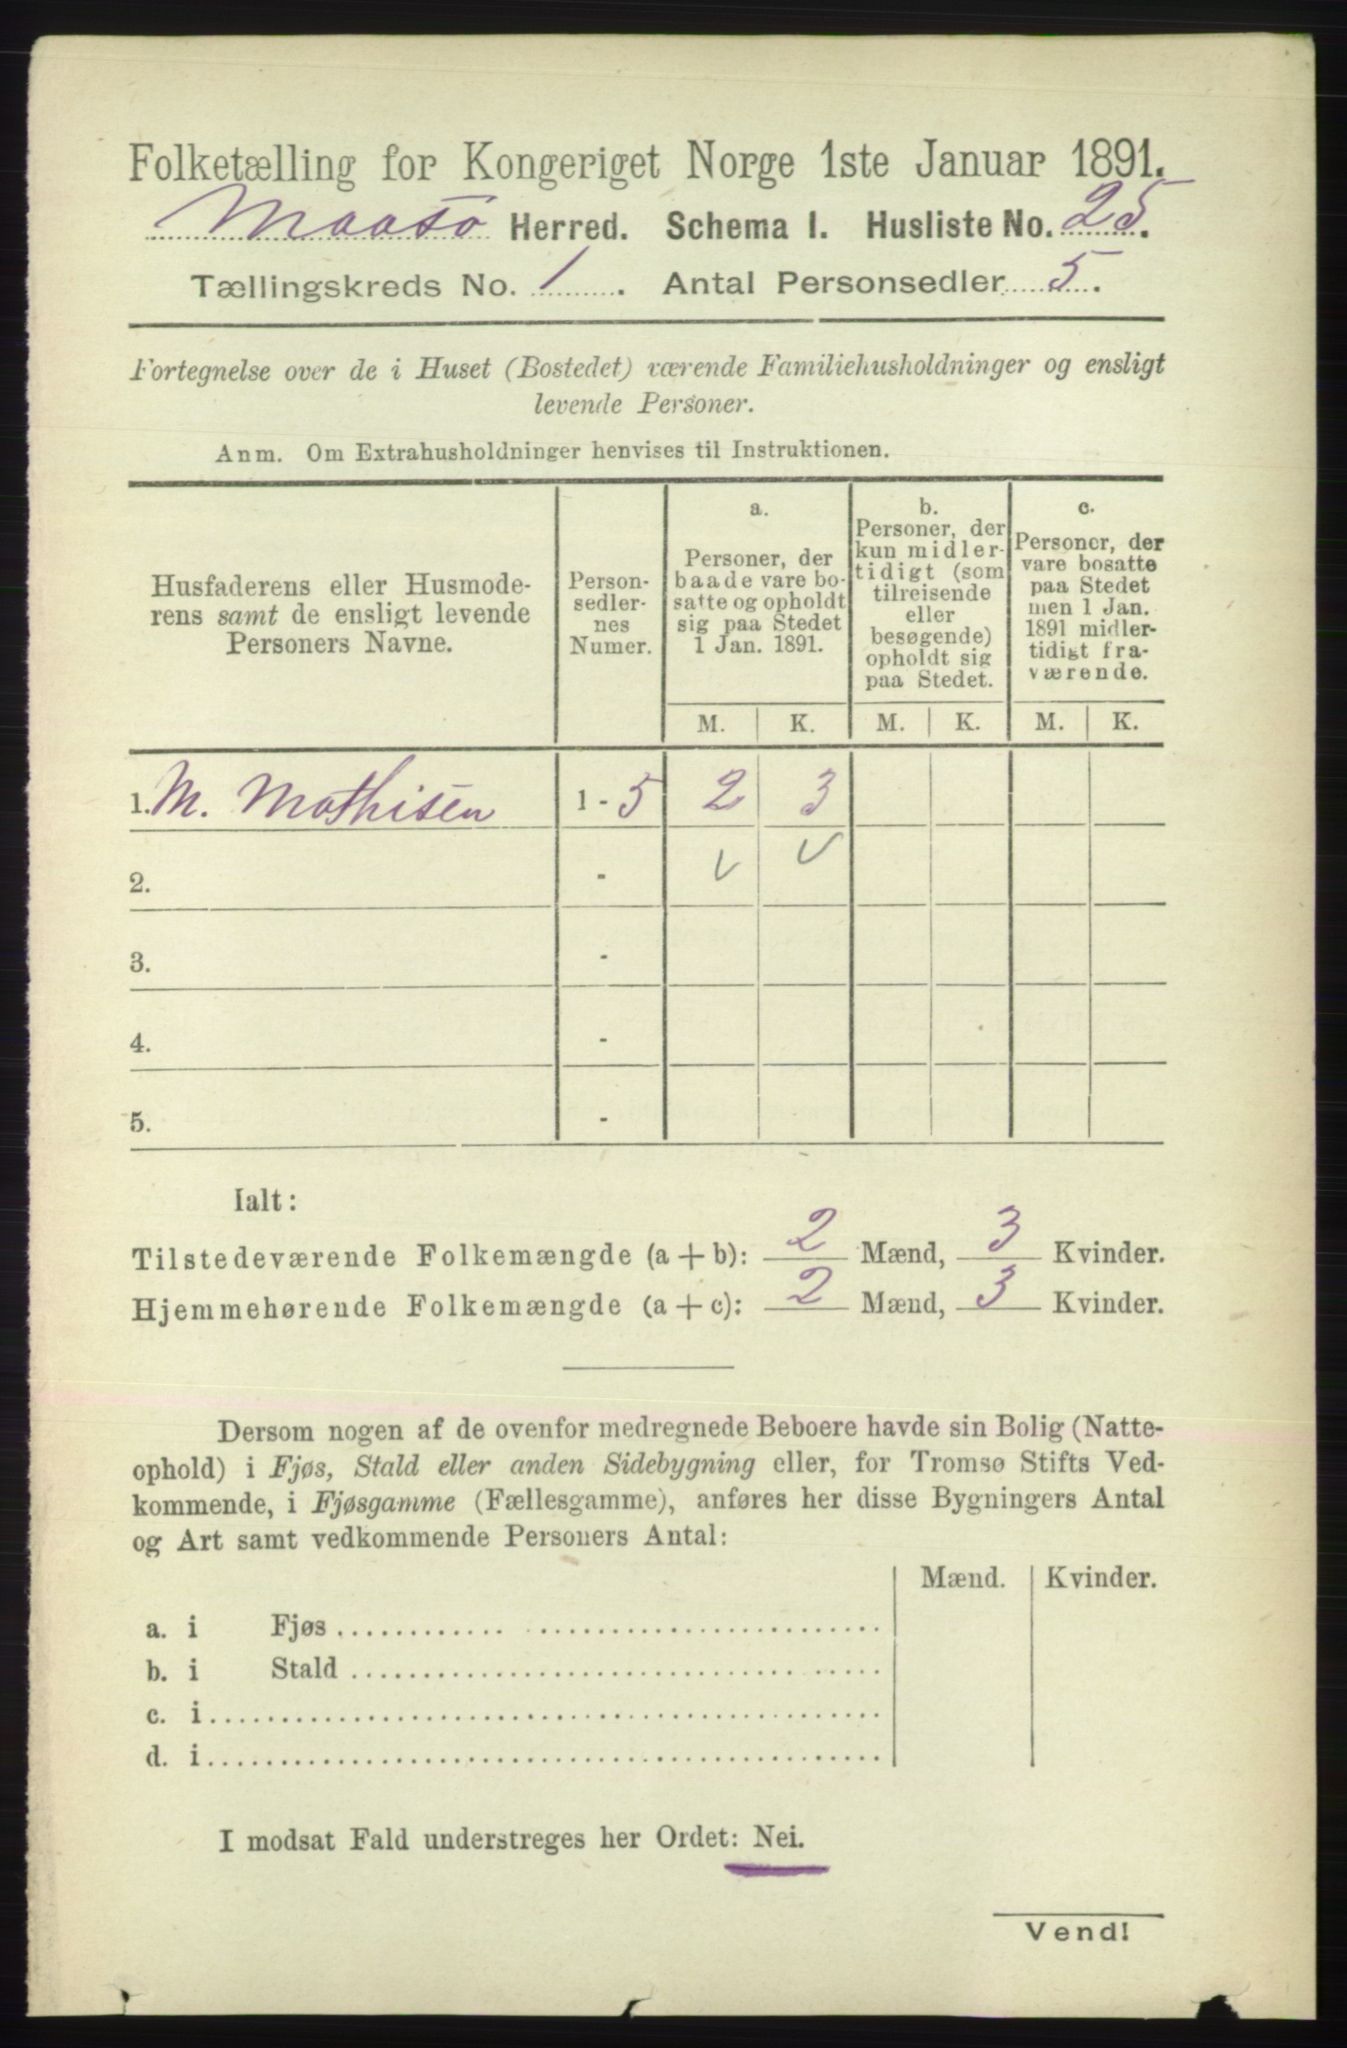 Folketælling for Kongeriget Norge 1ste Januar 1891.
Maasø Herred. Schema I. Husliste No. 25.
Tællingskreds No. 1. Antal Personsedler 5.
Fortegnelse over de i Huset (Bostedet) værende Familiehusholdninger og ensligt
levende Personer.
Anm. Om Extrahusholdninger henvises til Instruktionen.
Husfaderens eller Husmode-
rens samt de ensligt levende
Personers Navne.
Person-
sedler-
nes
Numer.
a.
Personer, der
baade vare bo-
satte og opholdt
sig paa Stedet
1 Jan. 1891.
b.
Personer, der
kun midler-
tidigt (som
tilreisende
eller
besøgende)
opholdt sig
paa Stedet.
c.
Personer, der
vare bosatte
paa Stedet
men 1 Jan.
1891 midler-
tidigt fra-
værende.
M. K. M. K. M. K.
1. M. Mathisen 1 - 5 2 3
2. - v v
3. -
4. -
5. -
Ialt:
Tilstedeværende Folkemængde (a + b): 2 Mænd, 3 Kvinder.
Hjemmehørende Folkemængde (a + c): 2 Mænd, 3 Kvinder.
Dersom nogen af de ovenfor medregnede Beboere havde sin Bolig (Natte-
ophold) i Fjøs, Stald eller anden Sidebygning eller, for Tromsø Stifts Ved-
kommende, i Fjøsgamme (Fællesgamme), anføres her disse Bygningers Antal
og Art samt vedkommende Personers Antal:
Mænd. Kvinder.
a. i Fjøs
b. i Stald
c. i
d. i
I modsat Fald understreges her Ordet: Nei.
Vend!